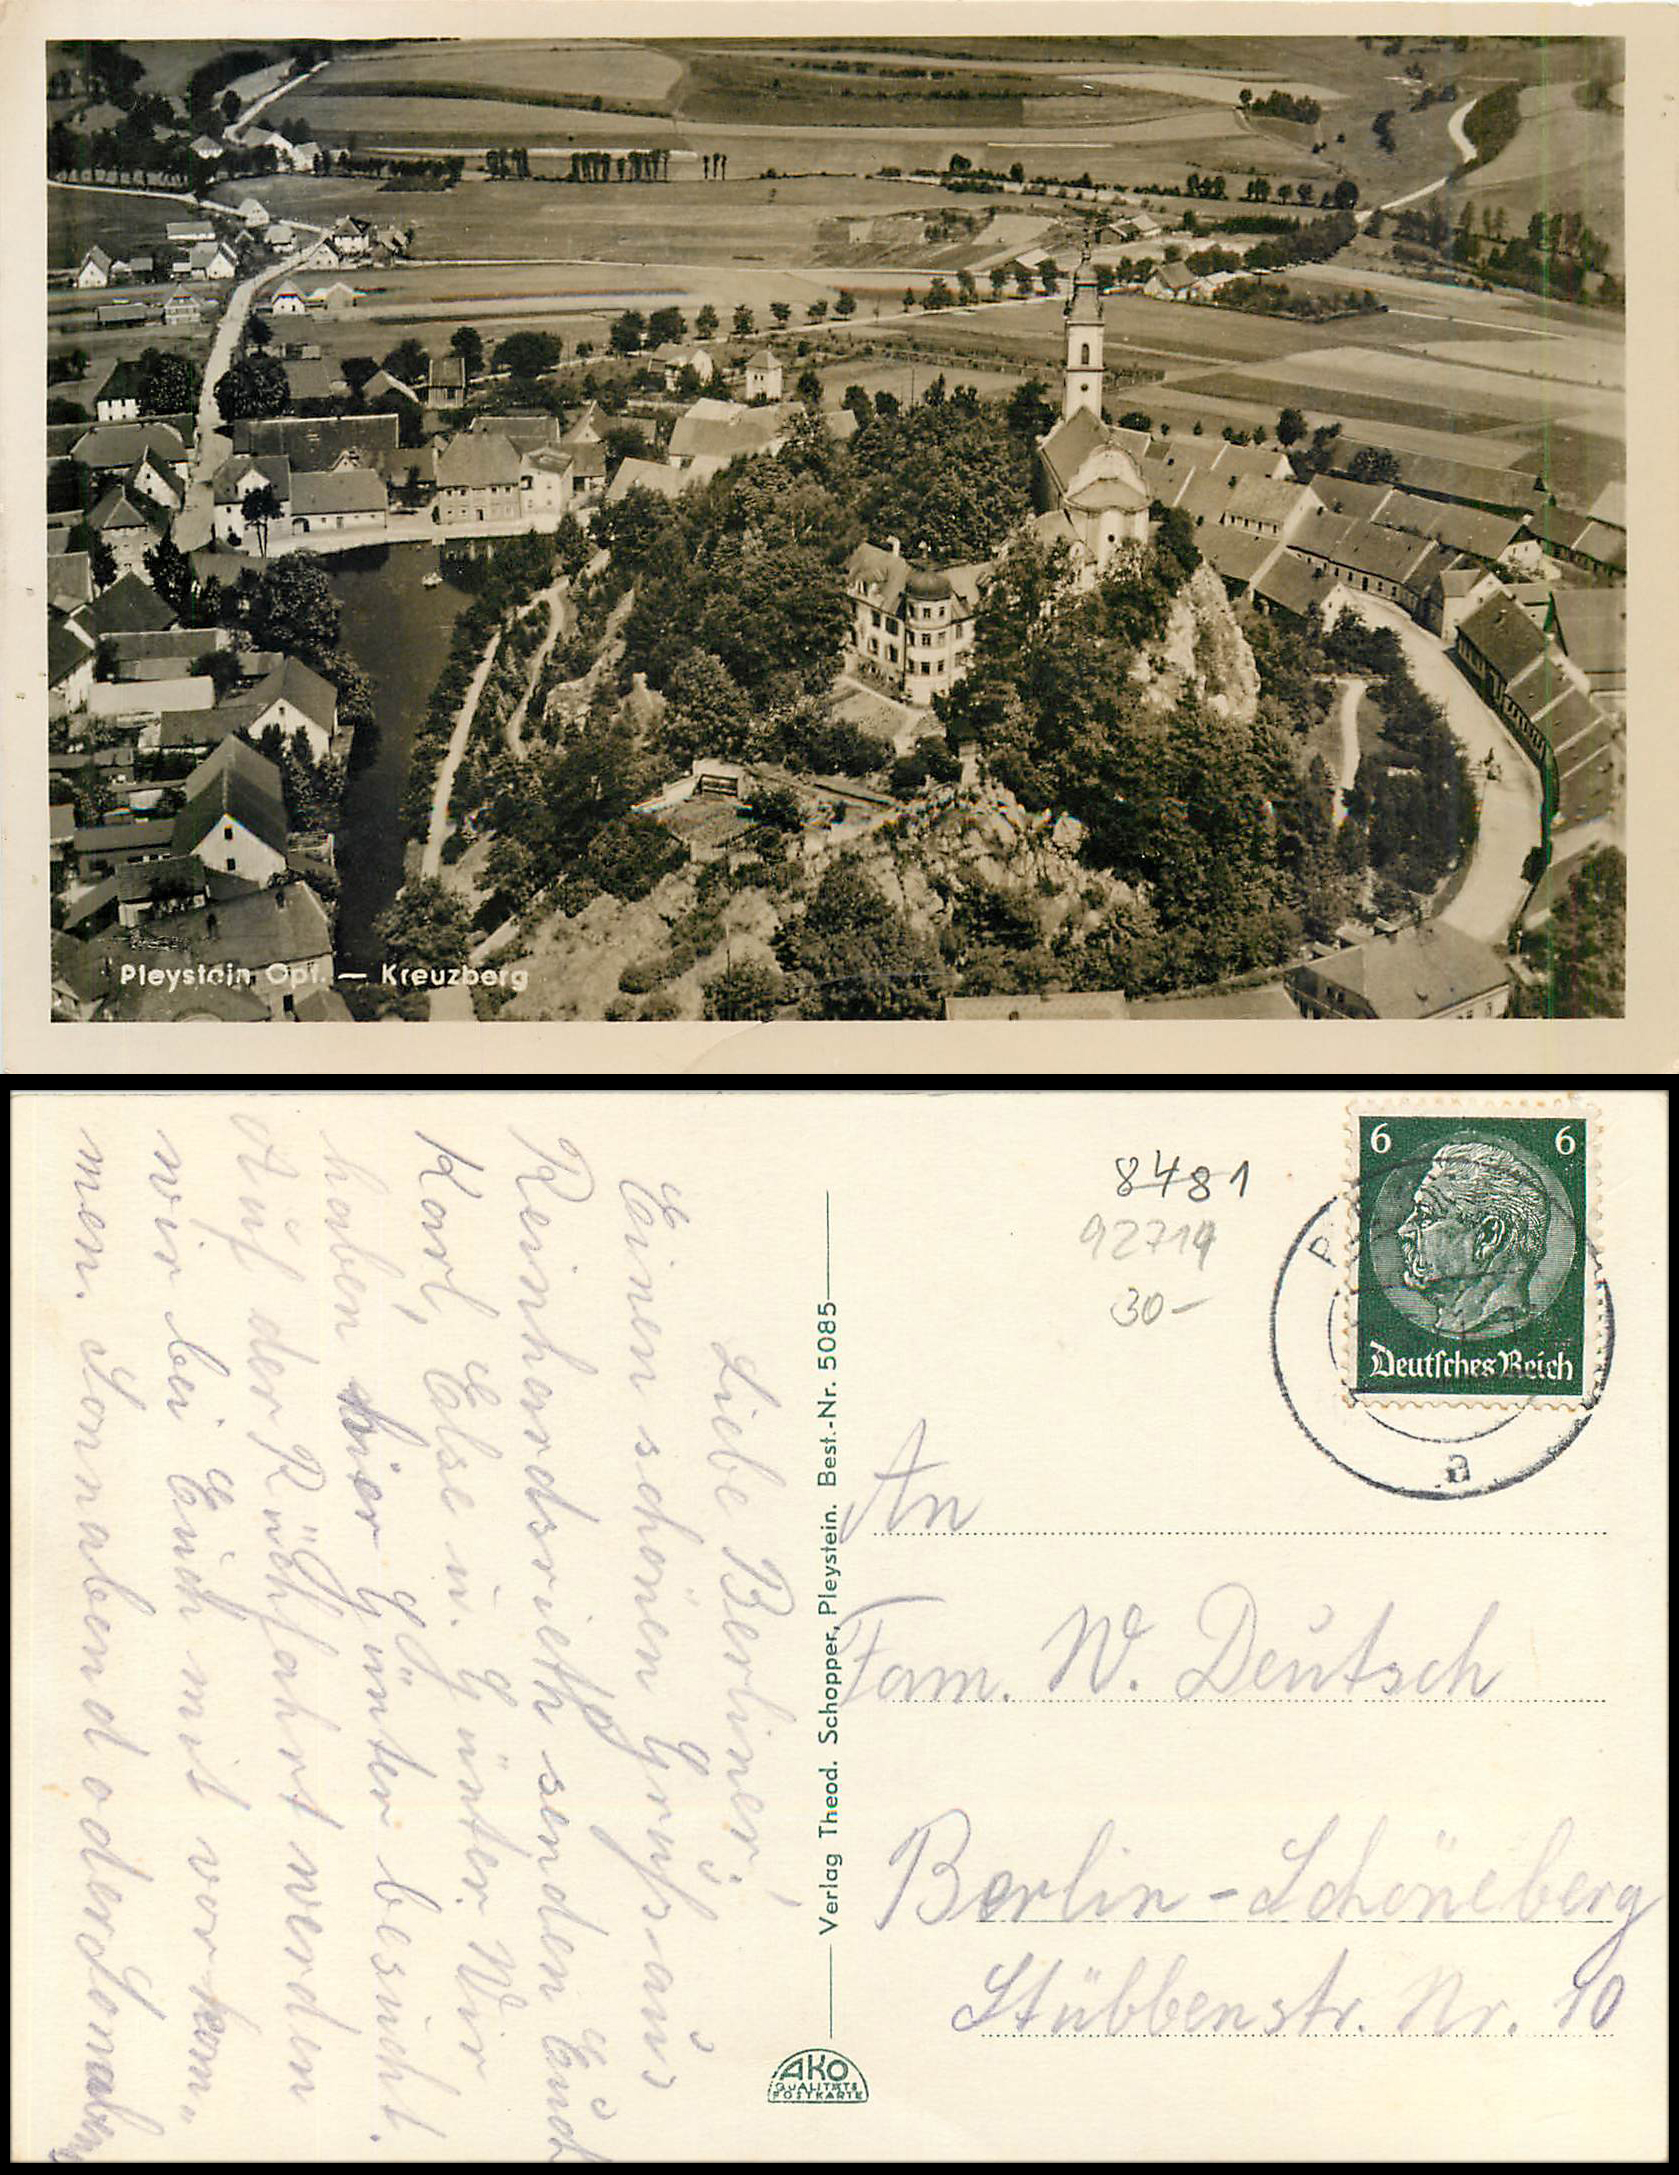 Pleystein Opf. — Kreuzberg
8481
92714
30-
6 6
Deutsches Reich
P
a
An
Fam. W. Deutsch
Berlin-Schöneberg
Stübbenstr. Nr. 10
Verlag Theod. Schopper, Pleystein. Best.-Nr. 5085
AKO
QUALITÄTS
POSTKARTE
Liebe Berliner!
Einen schönen Gruß aus
Reinhardsrieth senden Euch
Karl, Else u. Günter. Wir
haben hier Günter besucht.
Auf der Rückfahrt werden
wir bei Euch mit vorkom=
men. Sonnabend oder